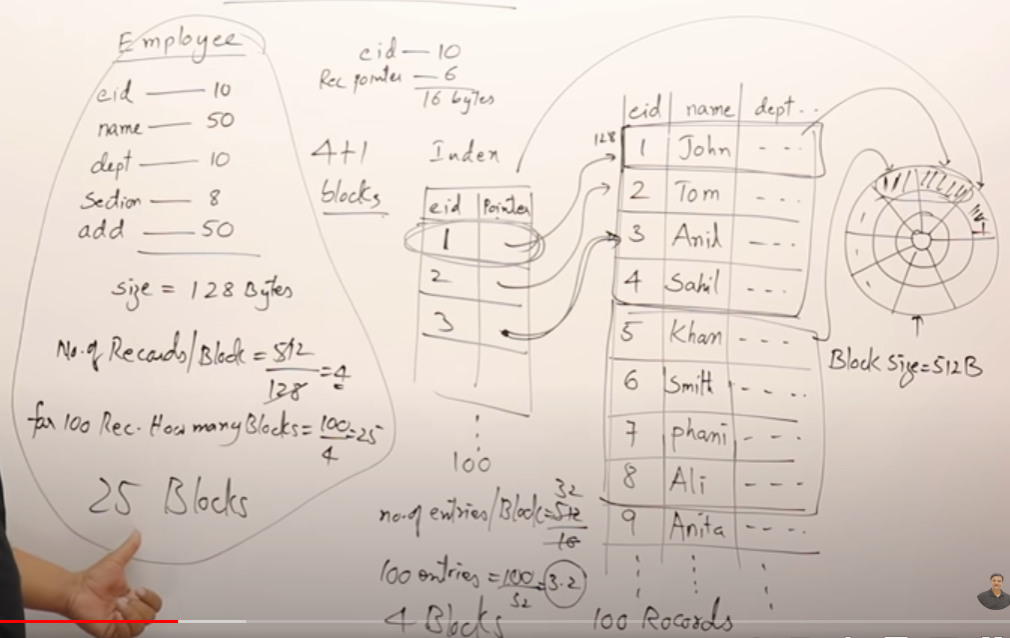 Employee
eid — 10
name — 50
dept — 10
Section — 8
add — 50
size = 128 Bytes
No. of Records/Block = 512
128
= 4
for 100 Rec. How many Blocks = 100
4
= 25
25 Blocks
eid — 10
Rec pointer — 6
16 bytes
4+1
blocks
Index
eid Pointer
1
2
3
100
32
no. of entries/Block = 512
16
100 entries = 100
32
= 3.2
4 Blocks
128
eid name dept..
1 John - - -
2 Tom - - -
3 Anil - - -
4 Sahil - - -
5 Khan - - -
6 Smith - - -
7 phani - - -
8 Ali - - -
9 Anita - - -
100 Records
Block Size = 512B